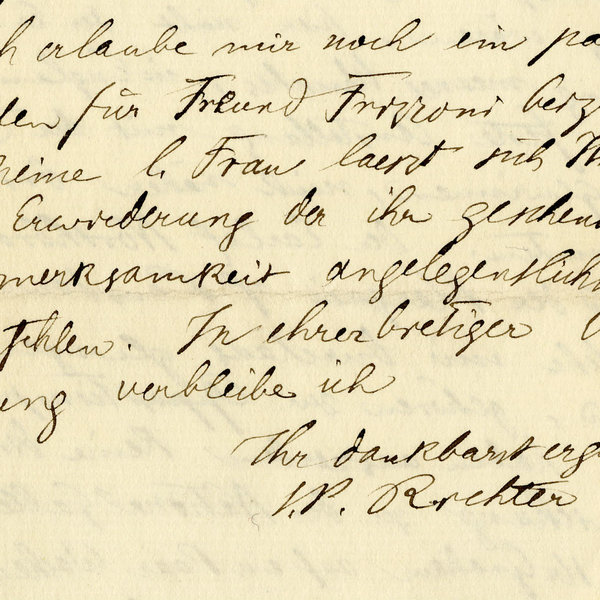 h erlaube mir noch ein pa
den für Freund Frizzoni beiz
Meine l. Frau laesst sich Ih
Erwiederung der ihr geschen
merksamkeit angelegentlich
fehlen. In ehrerbietiger
ung verbleibe ich
Ihr dankbarst erge
J. P. Richter